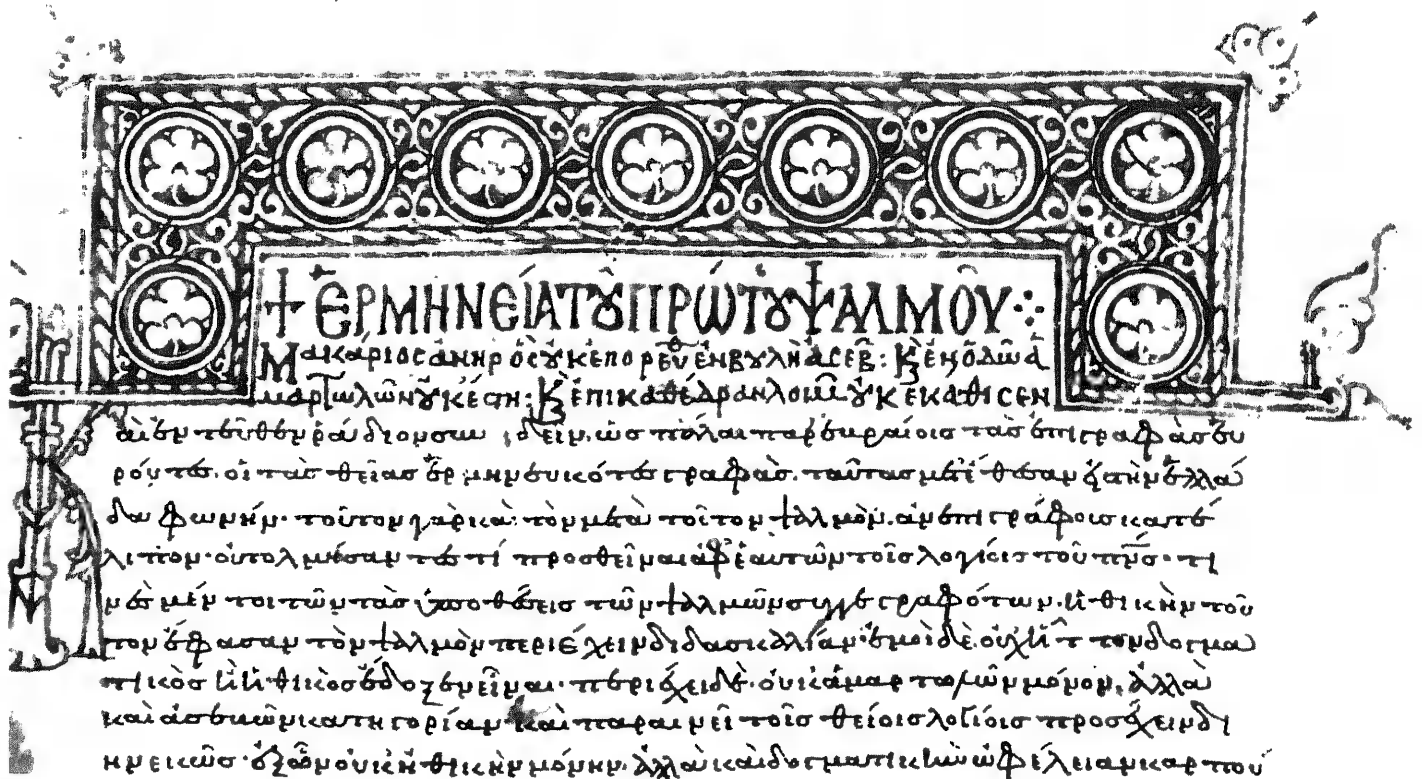 + ἙΡΜΗΝΕΊΑ ΤΟΥ͂ ΠΡΏΤΟΥ ΨΑΛΜΟΥ͂
Μακάριος ἀνὴρ ὃς οὐκ ἐπορεύθ ἐν βουλῇ ἀσεβ: κ ἐν ὁδῷ ἁ
μαρτωλῶν οὐκ ἔστη: κ ἐπὶ καθέδραν λοιμ οὐκ ἐκάθισεν
κἀντεῦθεν ῥάδιον συνιδεῖν, ὡς πάλαι παρ' ἑβραίοις τὰς ἐπιγραφὰς εὑ
ρόντες. οἱ τὰς θείας ἑρμηνευκότες γραφὰς. ταύτας μετέθεσαν εἰς τὴν ἑλλά
δα φωνήν. τοῦτον γὰρ καὶ τὸν μετὰ τοῦτον ψαλμὸν. ἀνεπιγράφους κατέ
λιπον. οὐ τολμήσαντές τί προσθεῖναι ἀφ' ἑαυτῶν τοῖς λογίοις τοῦ πνς. τι
νὲς μέν τοι τῶν τὰς ὑποθέσεις τῶν ψαλμῶν συγγεγραφότων. ἠθικὴν τοῦ
τον ἔφασαν τὸν ψαλμὸν περιέχειν διδασκαλίαν. ἐμοὶ δὲ οὐχ ἧττον δογμα
τικὸς ἢ ἠθικὸς ἔδοξεν εἶναι. περιέχει δὲ. οὐχ ἁμαρτωλῶν μόνον, ἀλλὰ
καὶ ἀσεβῶν κατηγορίαν. καὶ παραινεῖ τοῖς θείοις λογίοις προσέχειν δι
ηνεκῶς. ἐξ ὧν οὐκ ἠθικὴν μόνην. ἀλλὰ καὶ δογματικὴν ὠφέλειαν καρπού